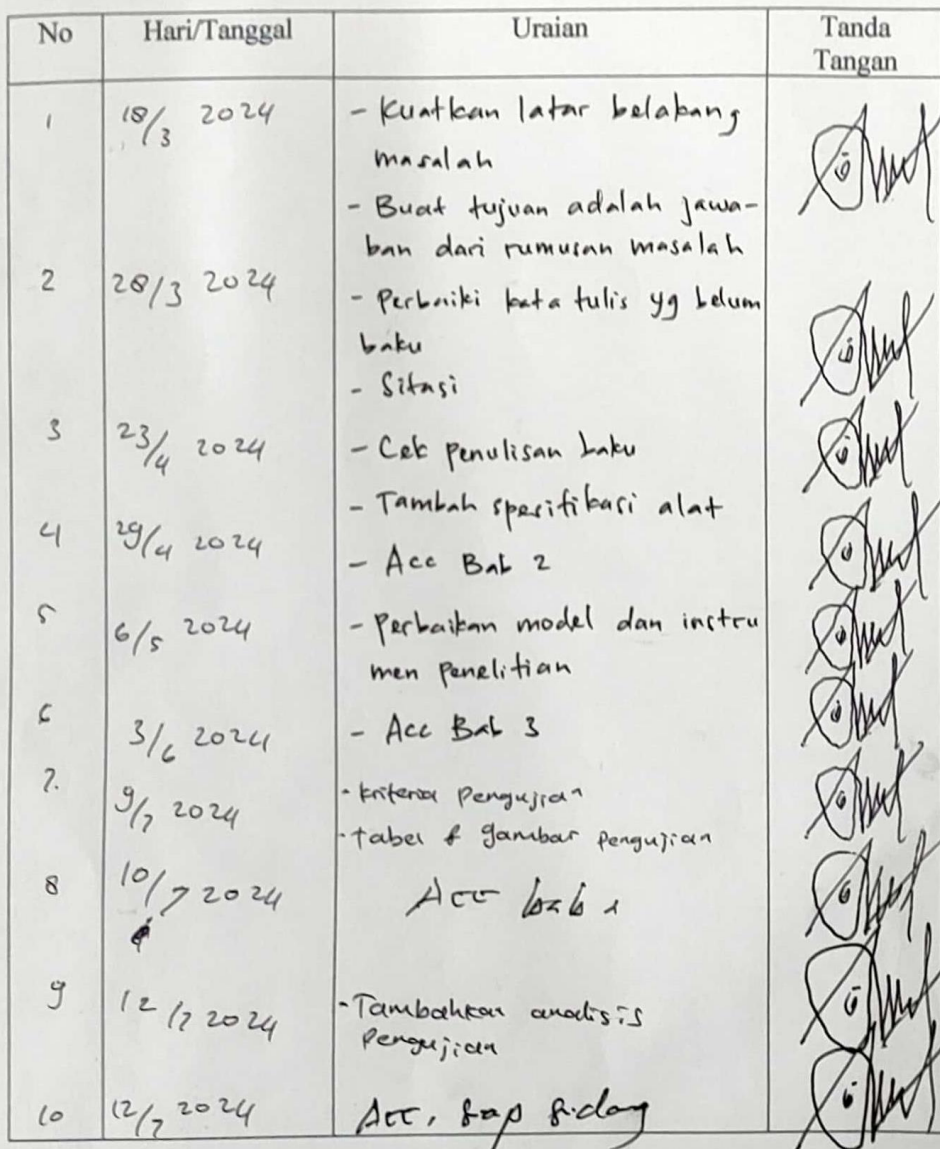 No Hari/Tanggal Uraian Tanda
Tangan
1 18/3 2024 - Kuatkan latar belakang
masalah
- Buat tujuan adalah jawa-
ban dari rumusan masalah
2 28/3 2024 - Perbaiki kata tulis yg belum
baku
- Sitasi
3 23/4 2024 - Cek penulisan baku
- Tambah spesifikasi alat
4 29/4 2024 - Acc Bab 2
5 6/5 2024 - Perbaikan model dan instru
men penelitian
6 3/6 2024 - Acc Bab 3
7. 9/7 2024 - kriteria Pengujian
- tabel & gambar Pengujian
8 10/7 2024 Acc bab
9 12/7 2024 - Tambahkan analisis
Pengujian
10 12/7 2024 Acc, siap sidang